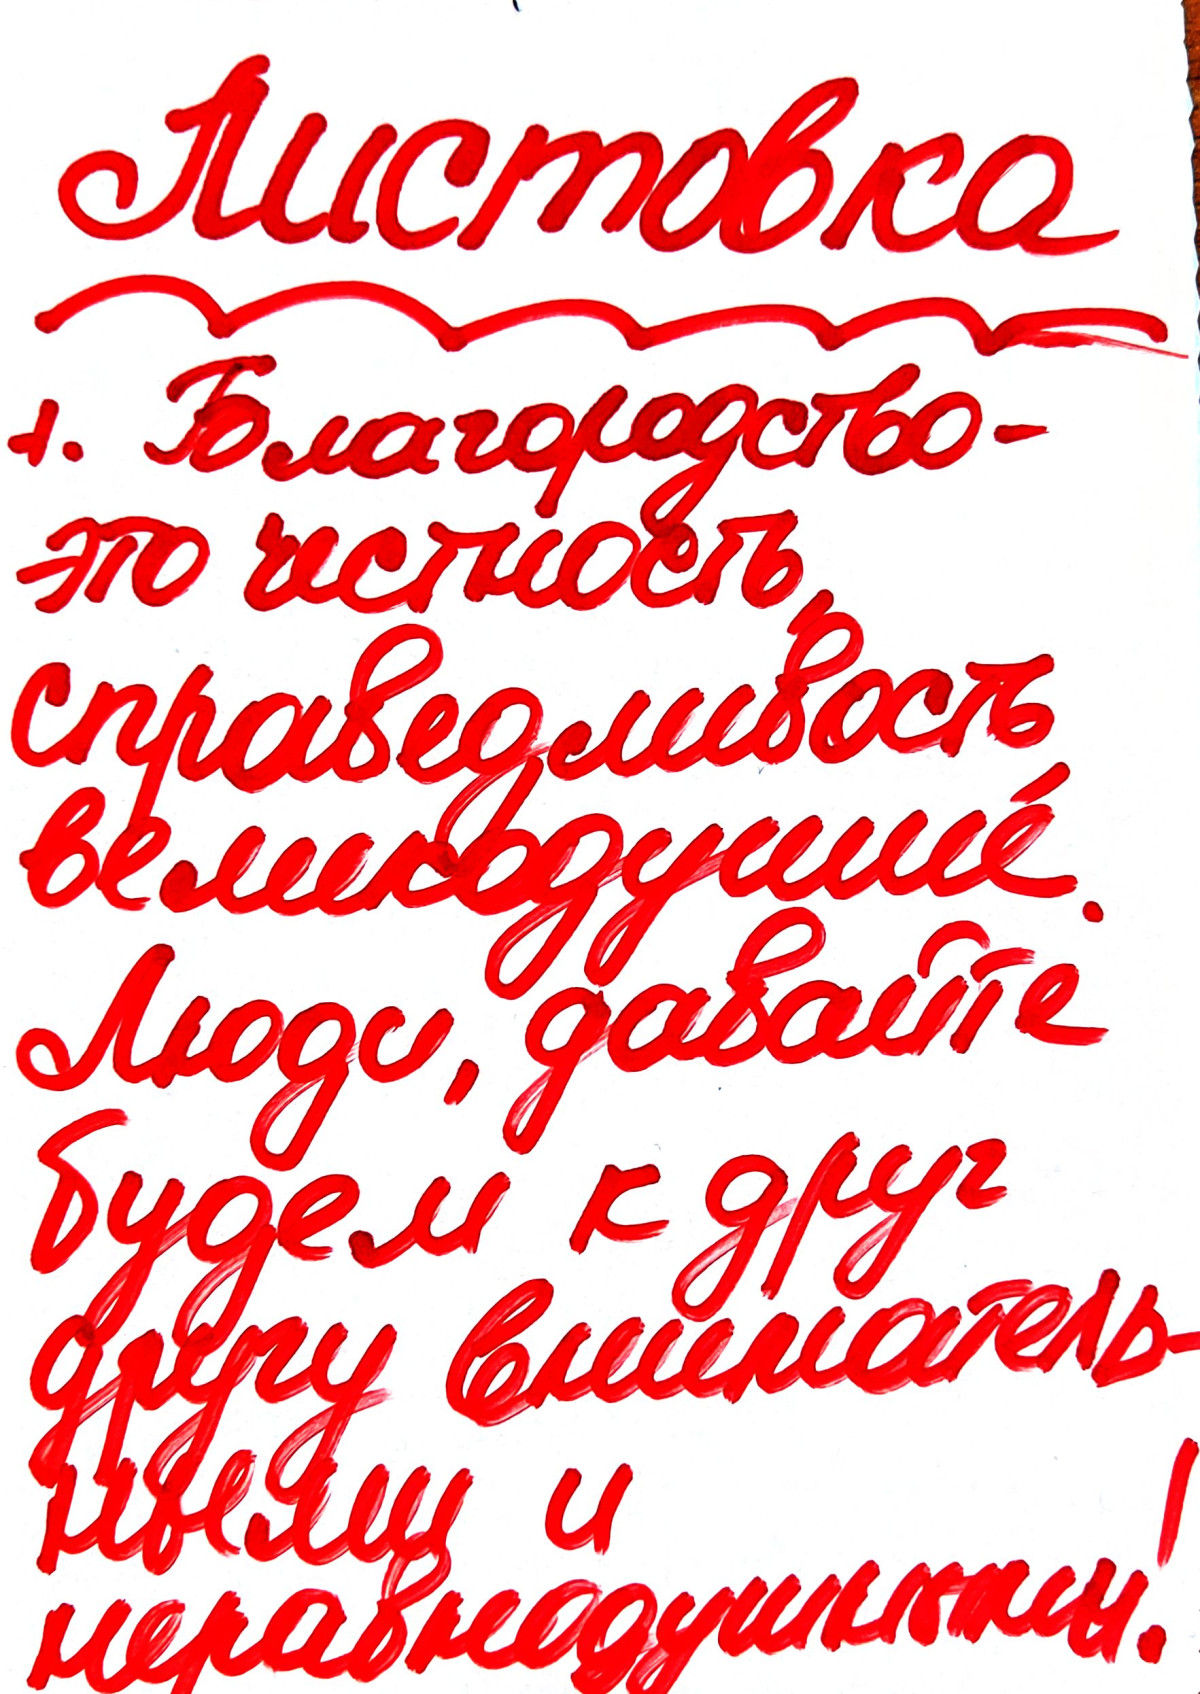 Листовка
1. Благородство-
это честность,
справедливость
великодушие.
Люди, давайте
будем к друг
другу внематель-
ными и
неравнодушными!